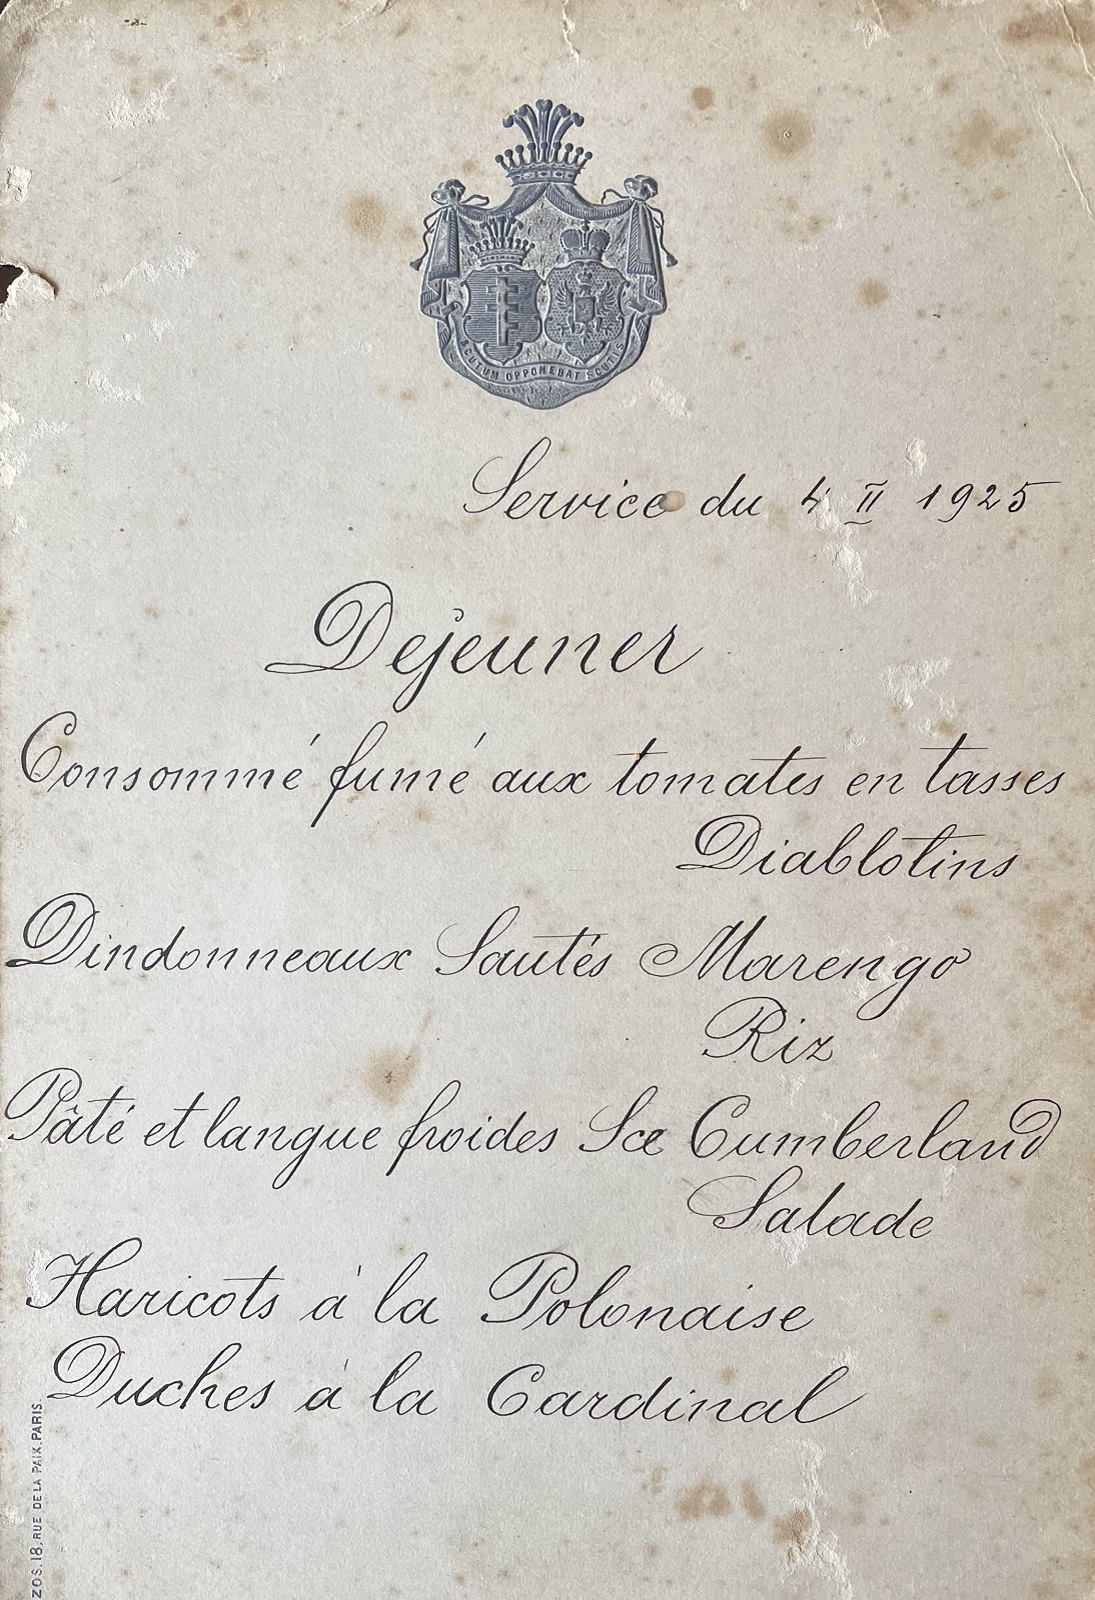 SCUTUM OPPONEBAT SCUTIS
Service du 4 II 1925
Dejeuner
Consommé fumé aux tomates en tasses
Diablotins
Dindonneaux Sautés Marengo
Riz
Pâté et langue froides Sce Cumberland
Salade
Haricots à la Polonaise
Duches à la Cardinal
ZOS. 18, RUE DE LA PAIX. PARIS.